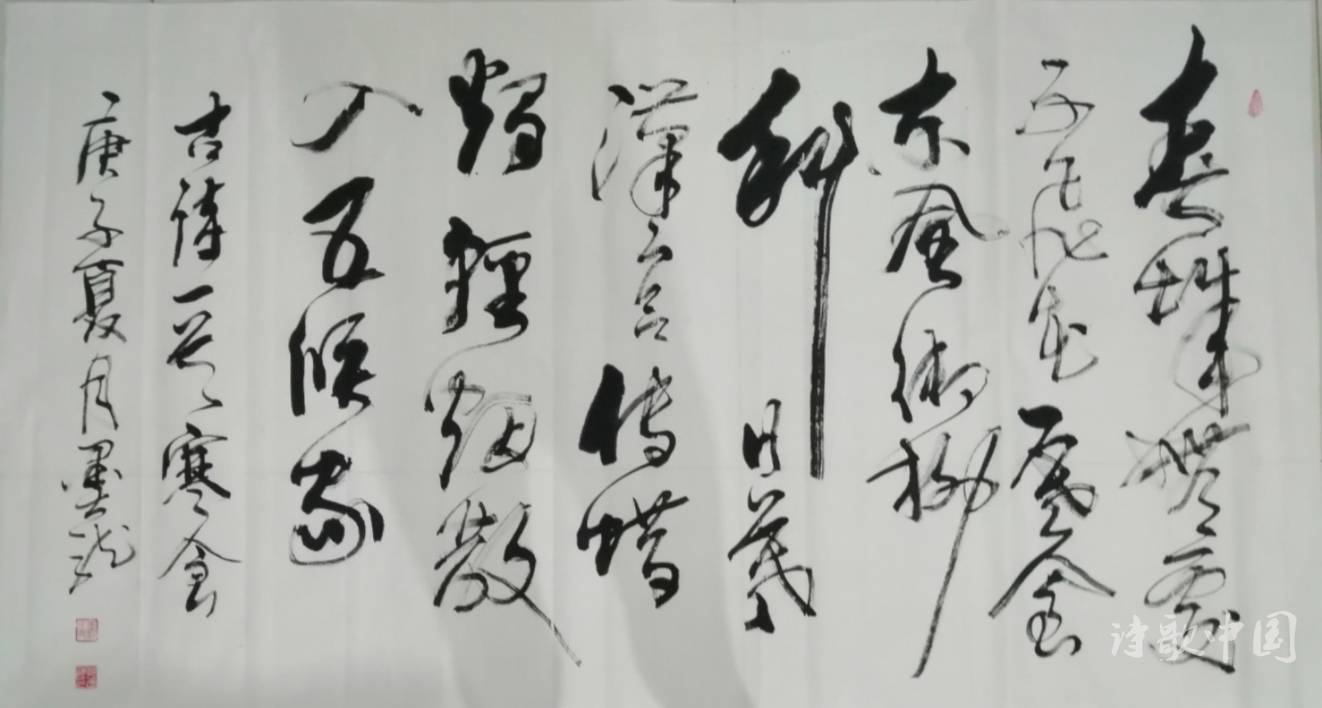 春城無處
不飛花寒食
東風御柳
斜日暮
漢宮傳蜡
燭輕烟散
入五侯家
古詩一首寒食
庚子夏月墨龙
诗歌中国